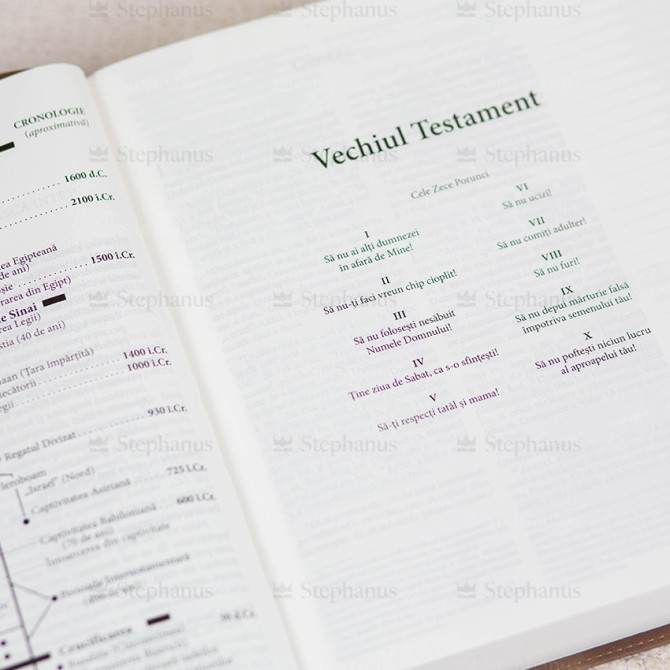 CRONOLOGIE
(aproximativă)
1600 d.C.
2100 î.Cr.
Egipteană
de ani)
1500 î.Cr.
din Egipt)
Sinai
Legii)
(40 de ani)
(Țara împărțită)
1400 î.Cr.
1000 î.Cr.
930 î.Cr.
Regatul Divizat
Ieroboam
„Israel” (Nord)
725 î.Cr.
Captivitatea Asiriană
600 î.Cr.
Captivitatea Babiloniană
(70 de ani)
Întoarcerea din captivitate
Perioada Intertestamentară
Crucificarea
Vechiul Testament
Cele Zece Porunci
I
Să nu ai alți dumnezei
în afară de Mine!
II
Să nu-ți faci vreun chip cioplit!
III
Să nu folosești nesăbuit
Numele Domnului!
IV
Ține ziua de Sabat, ca s-o sfințești!
V
Să-ți respecți tatăl și mama!
VI
Să nu ucizi!
VII
Să nu comiți adulter!
VIII
Să nu furi!
IX
Să nu depui mărturie falsă
împotriva semenului tău!
X
Să nu poftești niciun lucru
al aproapelui tău!
Stephanus Stephanus Stephanus
Stephanus Stephanus Stephanus
Stephanus Stephanus Stephanus
Stephanus Stephanus Stephanus
Stephanus Stephanus Stephanus